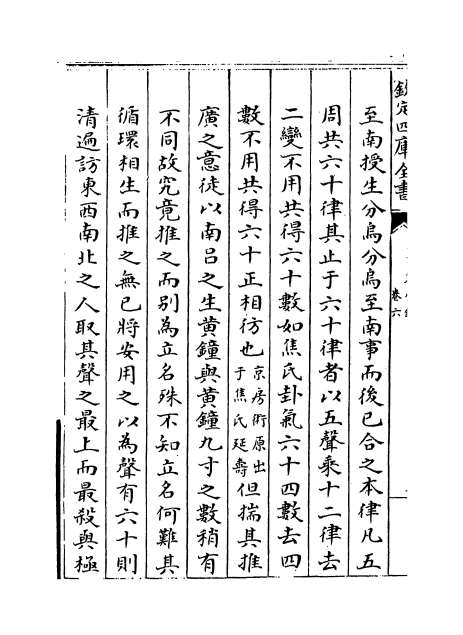 欽定四庫全書
卷六
至南授生分烏分烏至南事而後已合之本律凡五
周共六十律其止于六十律者以五聲乘十二律去
二變不用共得六十數如焦氏卦氣六十四數去四
數不用共得六十正相彷也京房術原出于焦氏延壽但揣其推
廣之意徒以南呂之生黄鐘與黄鐘九寸之數稍有
不同故究竟推之而别為立名殊不知立名何難其
循環相生而推之無已將安用之以為聲有六十則
清遍訪東西南北之人取其聲之最上而最殺與極